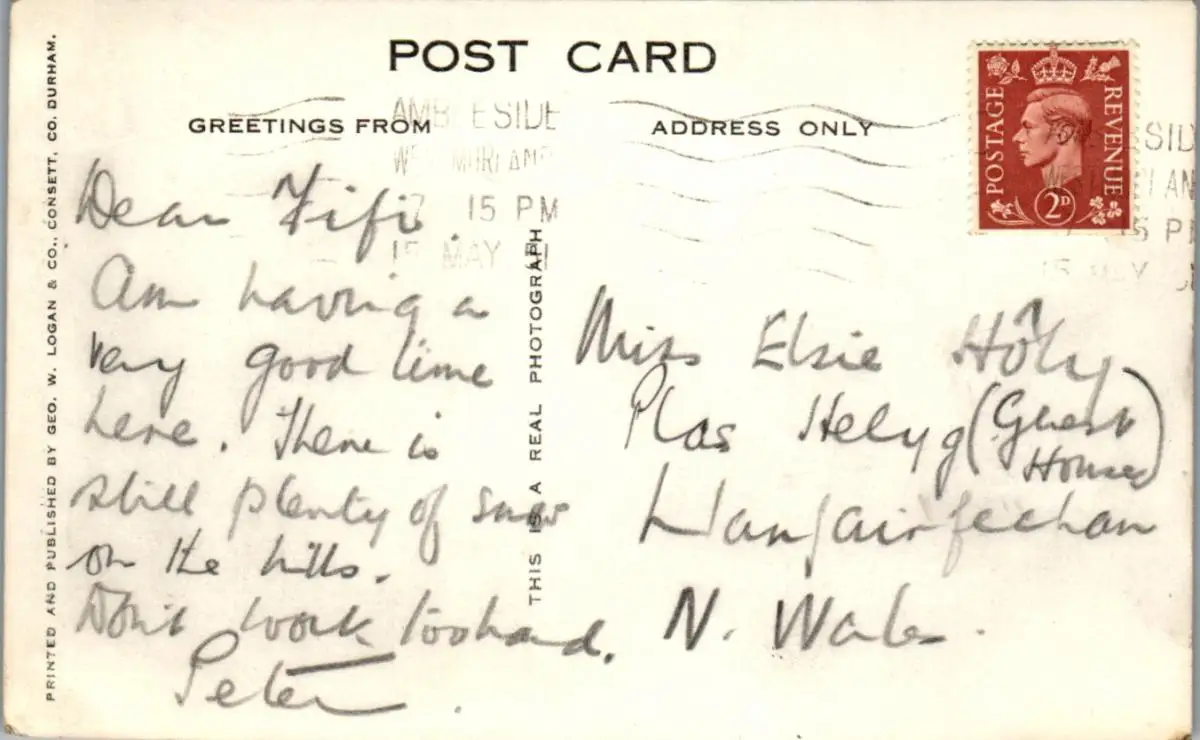 POST CARD
GREETINGS FROM
ADDRESS ONLY
AMBLESIDE
WESTMORLAND
7 15 PM
15 MAY
POSTAGE
REVENUE
2D
Dear Fifi.
Am having a
very good time
here. There is
still plenty of snow
on the hills.
Don't work too hard.
Peter.
Miss Elsie
Plas Helyg (Guest
House)
Llanfairfechan
N. Wales.
THIS IS A REAL PHOTOGRAPH
PRINTED AND PUBLISHED BY GEO. W. LOGAN & CO., CONSETT, CO. DURHAM.